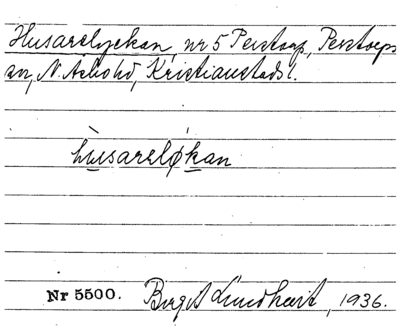 Husarelyckan, nr 5 Perstorp, Perstorps
sn, N. Åsbo hd, Kristianstads l.
hùsareløkan
Nr 5500. Birgit Lundkvist, 1936.